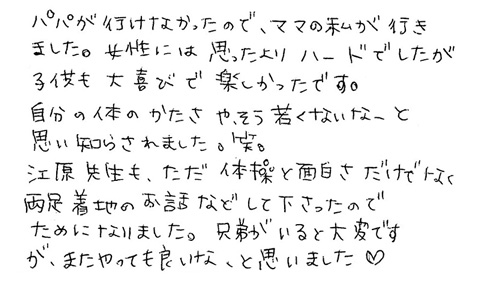 パパが行けなかったので、ママの私が行き
ました。女性には思ったよりハードでしたが
子供も大喜びで楽しかったです。
自分の体のかたさや、そう若くないなーと
思い知らされました。笑。
江原先生も、ただ体操と面白さだけでなく
両足着地のお話などして下さったので
ためになりました。兄弟がいると大変です
が、またやっても良いな、と思いました♡